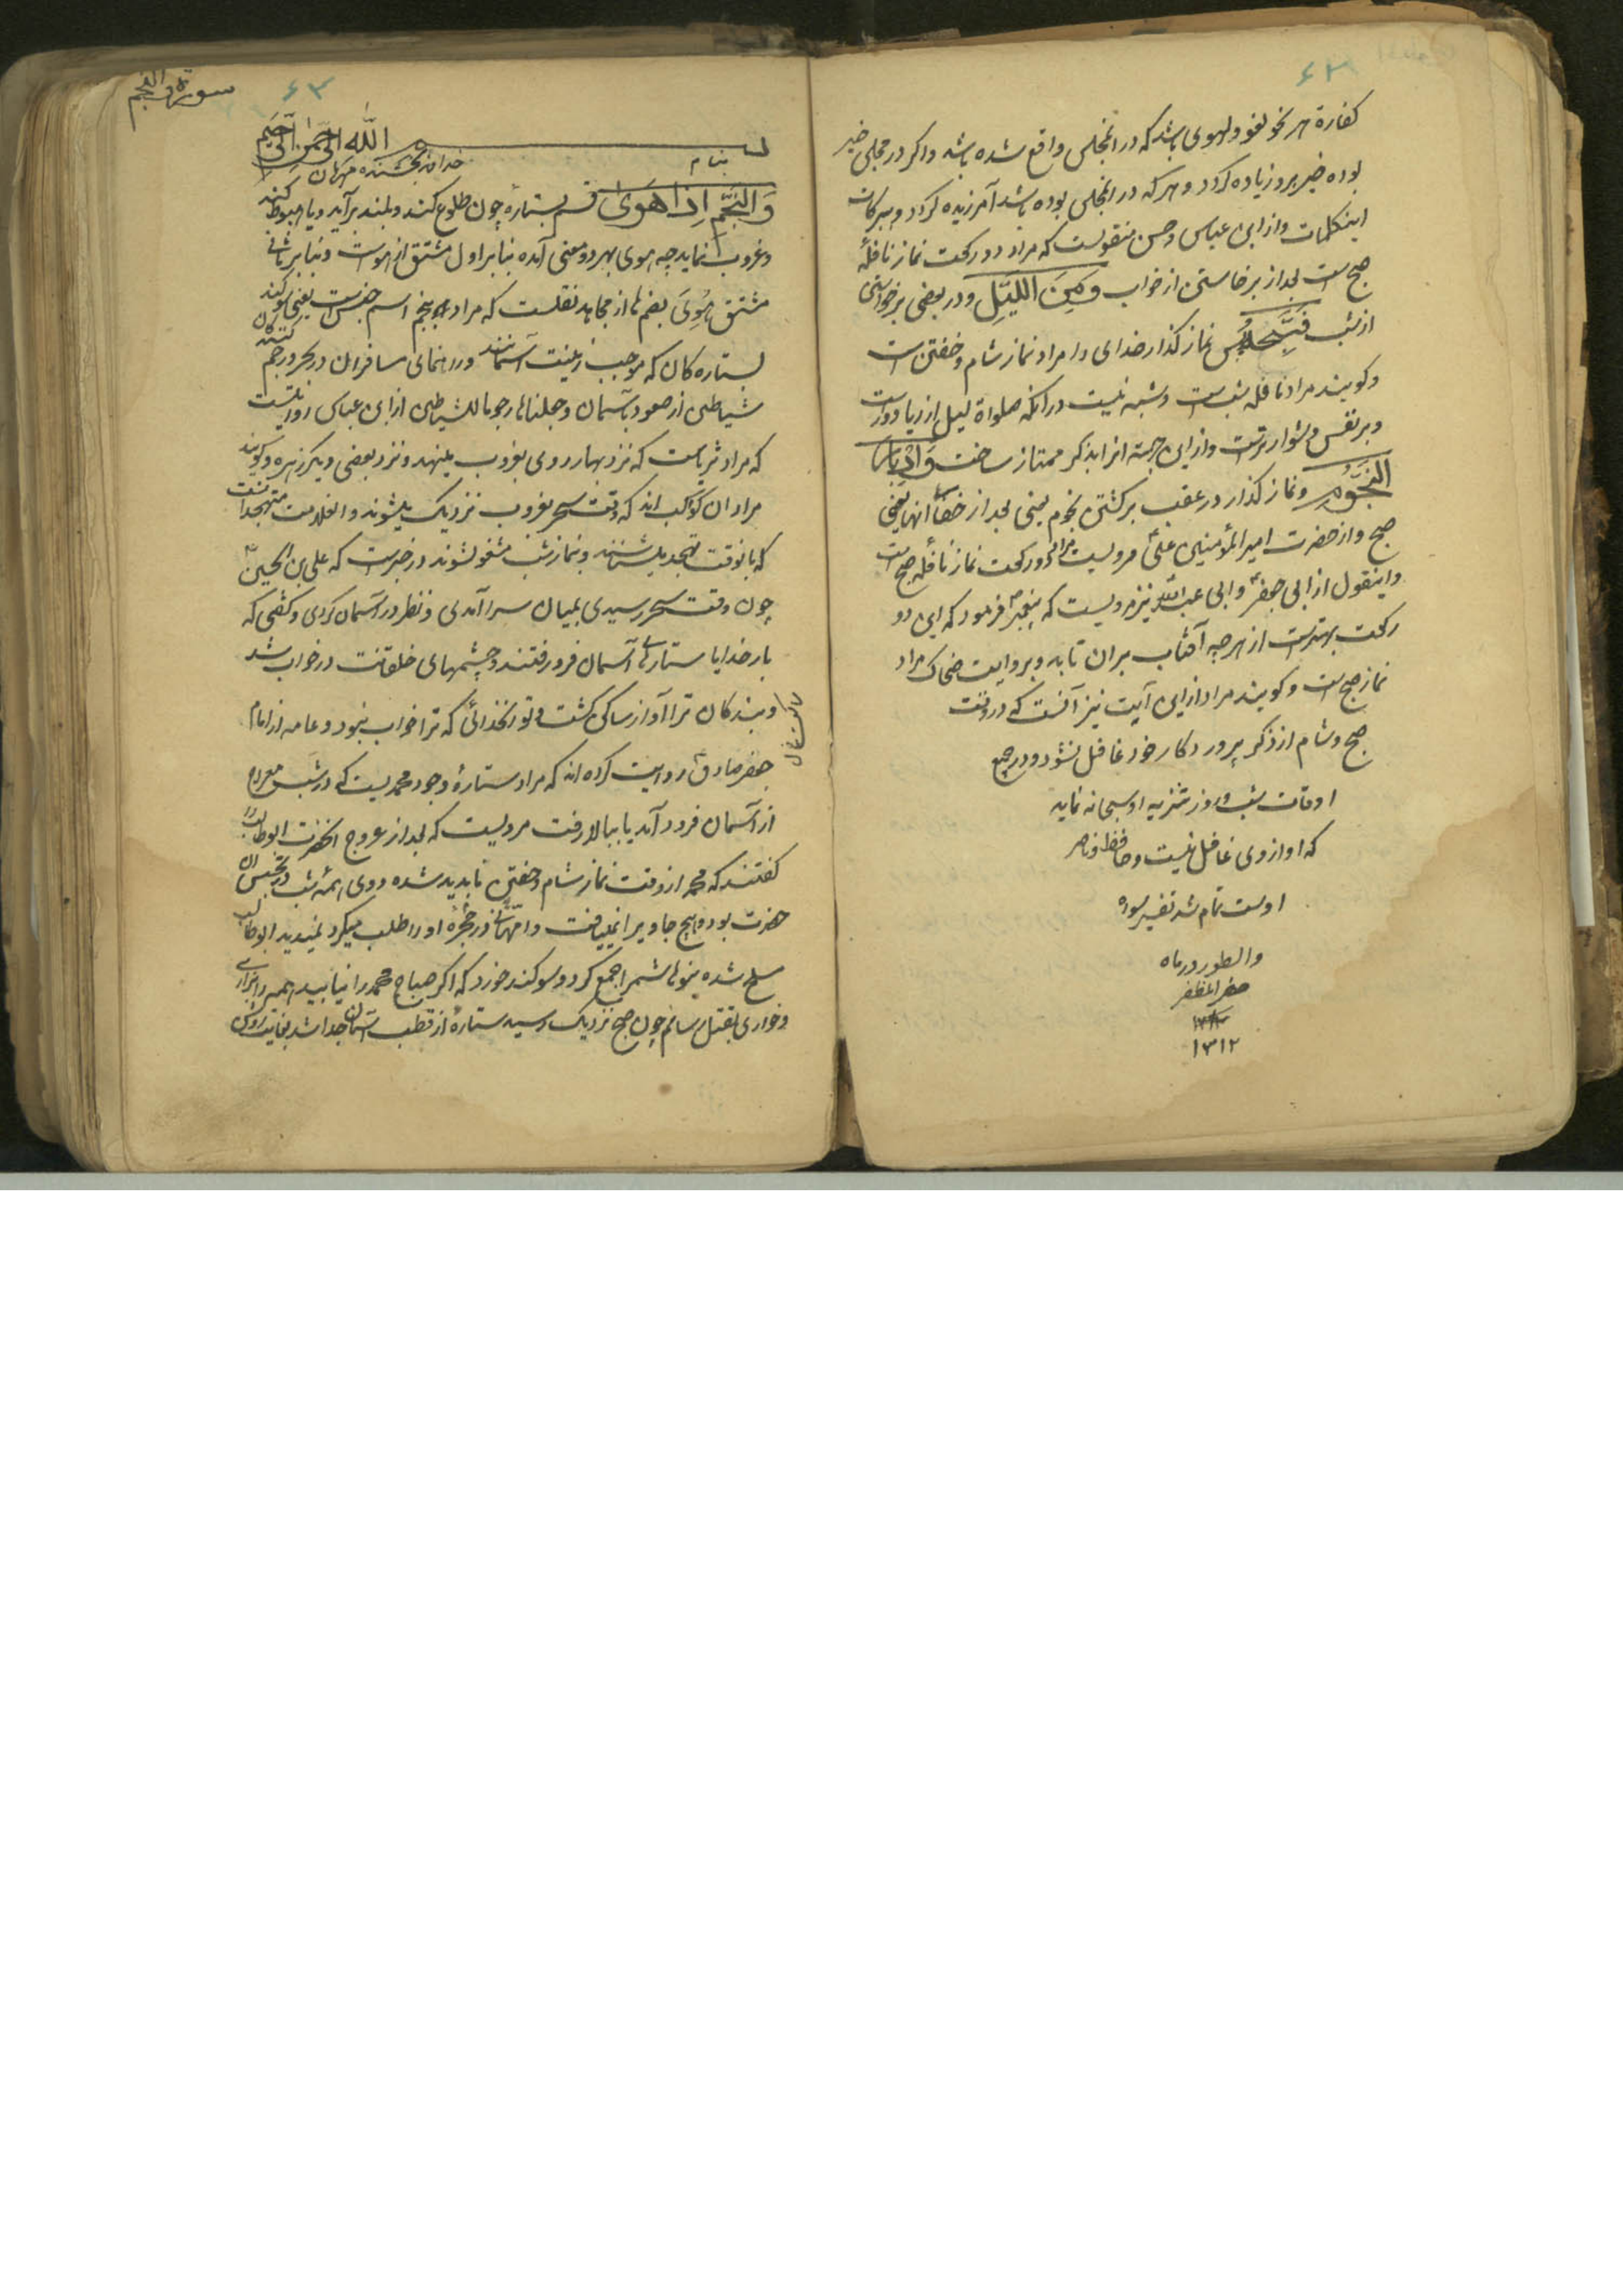 ۶۲
کفارة هر نحو لغو و لهوی باشد که در انمجلس واقع شده باشد و اکر در مجلس خیر
بوده خیر بروزیاده کردد و هر که در انمجلس بوده باشد آمرزیده کردد ببرکات
اینکلمات و از ابن عباس و حسن منقولست که مراد دو رکعت نماز نافلهٔ
صبح است بعد از برخاستن از خواب وَمِنَ اللَّیْلِ و در بعضی برخواستی
از شب فَسَبِّحْهُ پس نماز کذار خدای را مراد نماز شام و خفتن است
و کویند مراد نافله شبست و شبه نیست در انکه صلواة لیل از ریا دور است
و بر نفس دشوارتر است و از این جهته انرا بذکر ممتاز ساخت وَاِدْبَارَ
النُّجُوْمِ و نماز کذار در عقب برکشتن نجوم یعنی بعد از خفاء انها یعنی
صبح و از حضرت امیر المؤمنین علی مرویست مراد دو رکعت نماز نافله صبح است
و اینقول از ابی جعفر و ابی عبدالله نیز مرویست که پیغمبر فرمود که این دو
رکعت بهتر است از هر چه آفتاب بران تابد و بروایت ضحاک مراد
نماز صبح است و کویند مراد از این آیت نیز آنست که در وقت
صبح و شام از ذکر پروردکار خود غافل نشود و در جمیع
اوقات شب و روز تنزیه او سبحانه نماید
که او از وی غافل نیست و حافظ و ناصر
اوست تمام شد تفسیر سوره
والطور در ماه
صفر المظفر
۱۳۱۲
۶۳
سورة النجم
بسم الله الرحمن الرحیم
بنام خداوند بخشنده مهربان
وَالنَّجْمِ اِذَا هَوَیٰ قسم بستاره چون طلوع کند و بلند برآید و یا هبوط کند
و غروب نماید چه هوی بهر دو معنی آمده بنا بر اول مشتق از هواست و بنا بر ثانی
مشتق هُوِیَ بضم ها از مجاهد نقلست که مراد به نجم اسم جنس است یعنی سوکند
بستاره کان که موجب زینت آسمانند و راهنمای مسافران در بحر و رجم کنندکان
شیاطین از صعود بآسمان وجعلناها رجوما للشیاطین از ابن عباس روایتست
که مراد ثریاست که نزد بهار روی بغروب مینهد و نزد بعضی دیکر زهره و کویند
مراد ان کواکب اند که وقت سحر بغروب نزدیک میشوند و انعلامت متهجدانست
که بانوقت تهجد میشتابند و بنماز شب مشغولشوند در خبرست که علی بن الحسین
چون وقت سحر رسیدی بمیان سرا آمدی و نظر در آسمان کردی و کفتی که
بار خدایا ستارهای آسمان فرو رفتند و چشمهای خلقانت در خواب شد
و بندکان ترا آواز ساکن کشت و تو انخدائی که ترا خواب نبود و عامه از امام
جعفر صادق روایت کرده اند که مراد ستارهٔ وجود محمدیست که در شب معراج
از آسمان فرود آمد یا ببالا رفت مرویست که بعد از عروج انحضرت ابوطالب را
کفتند که محمد از وقت نماز شام و خفتن ناپدید شده و وی همه شب در تجسس ان
حضرت بود و هیچ جا ویرا نمییافت و امهانی در حجره او را طلب میکرد نمیدید ابوطالب
مسلح شده بنی هاشم را جمع کرد و سوکند خورد که اکر صباح محمد را نیابید همه را بزاری
و خواری بقتل رسانم چون صبح نزدیک رسید ستارهٔ از قطب آسمان جدا شد بغایت روشن